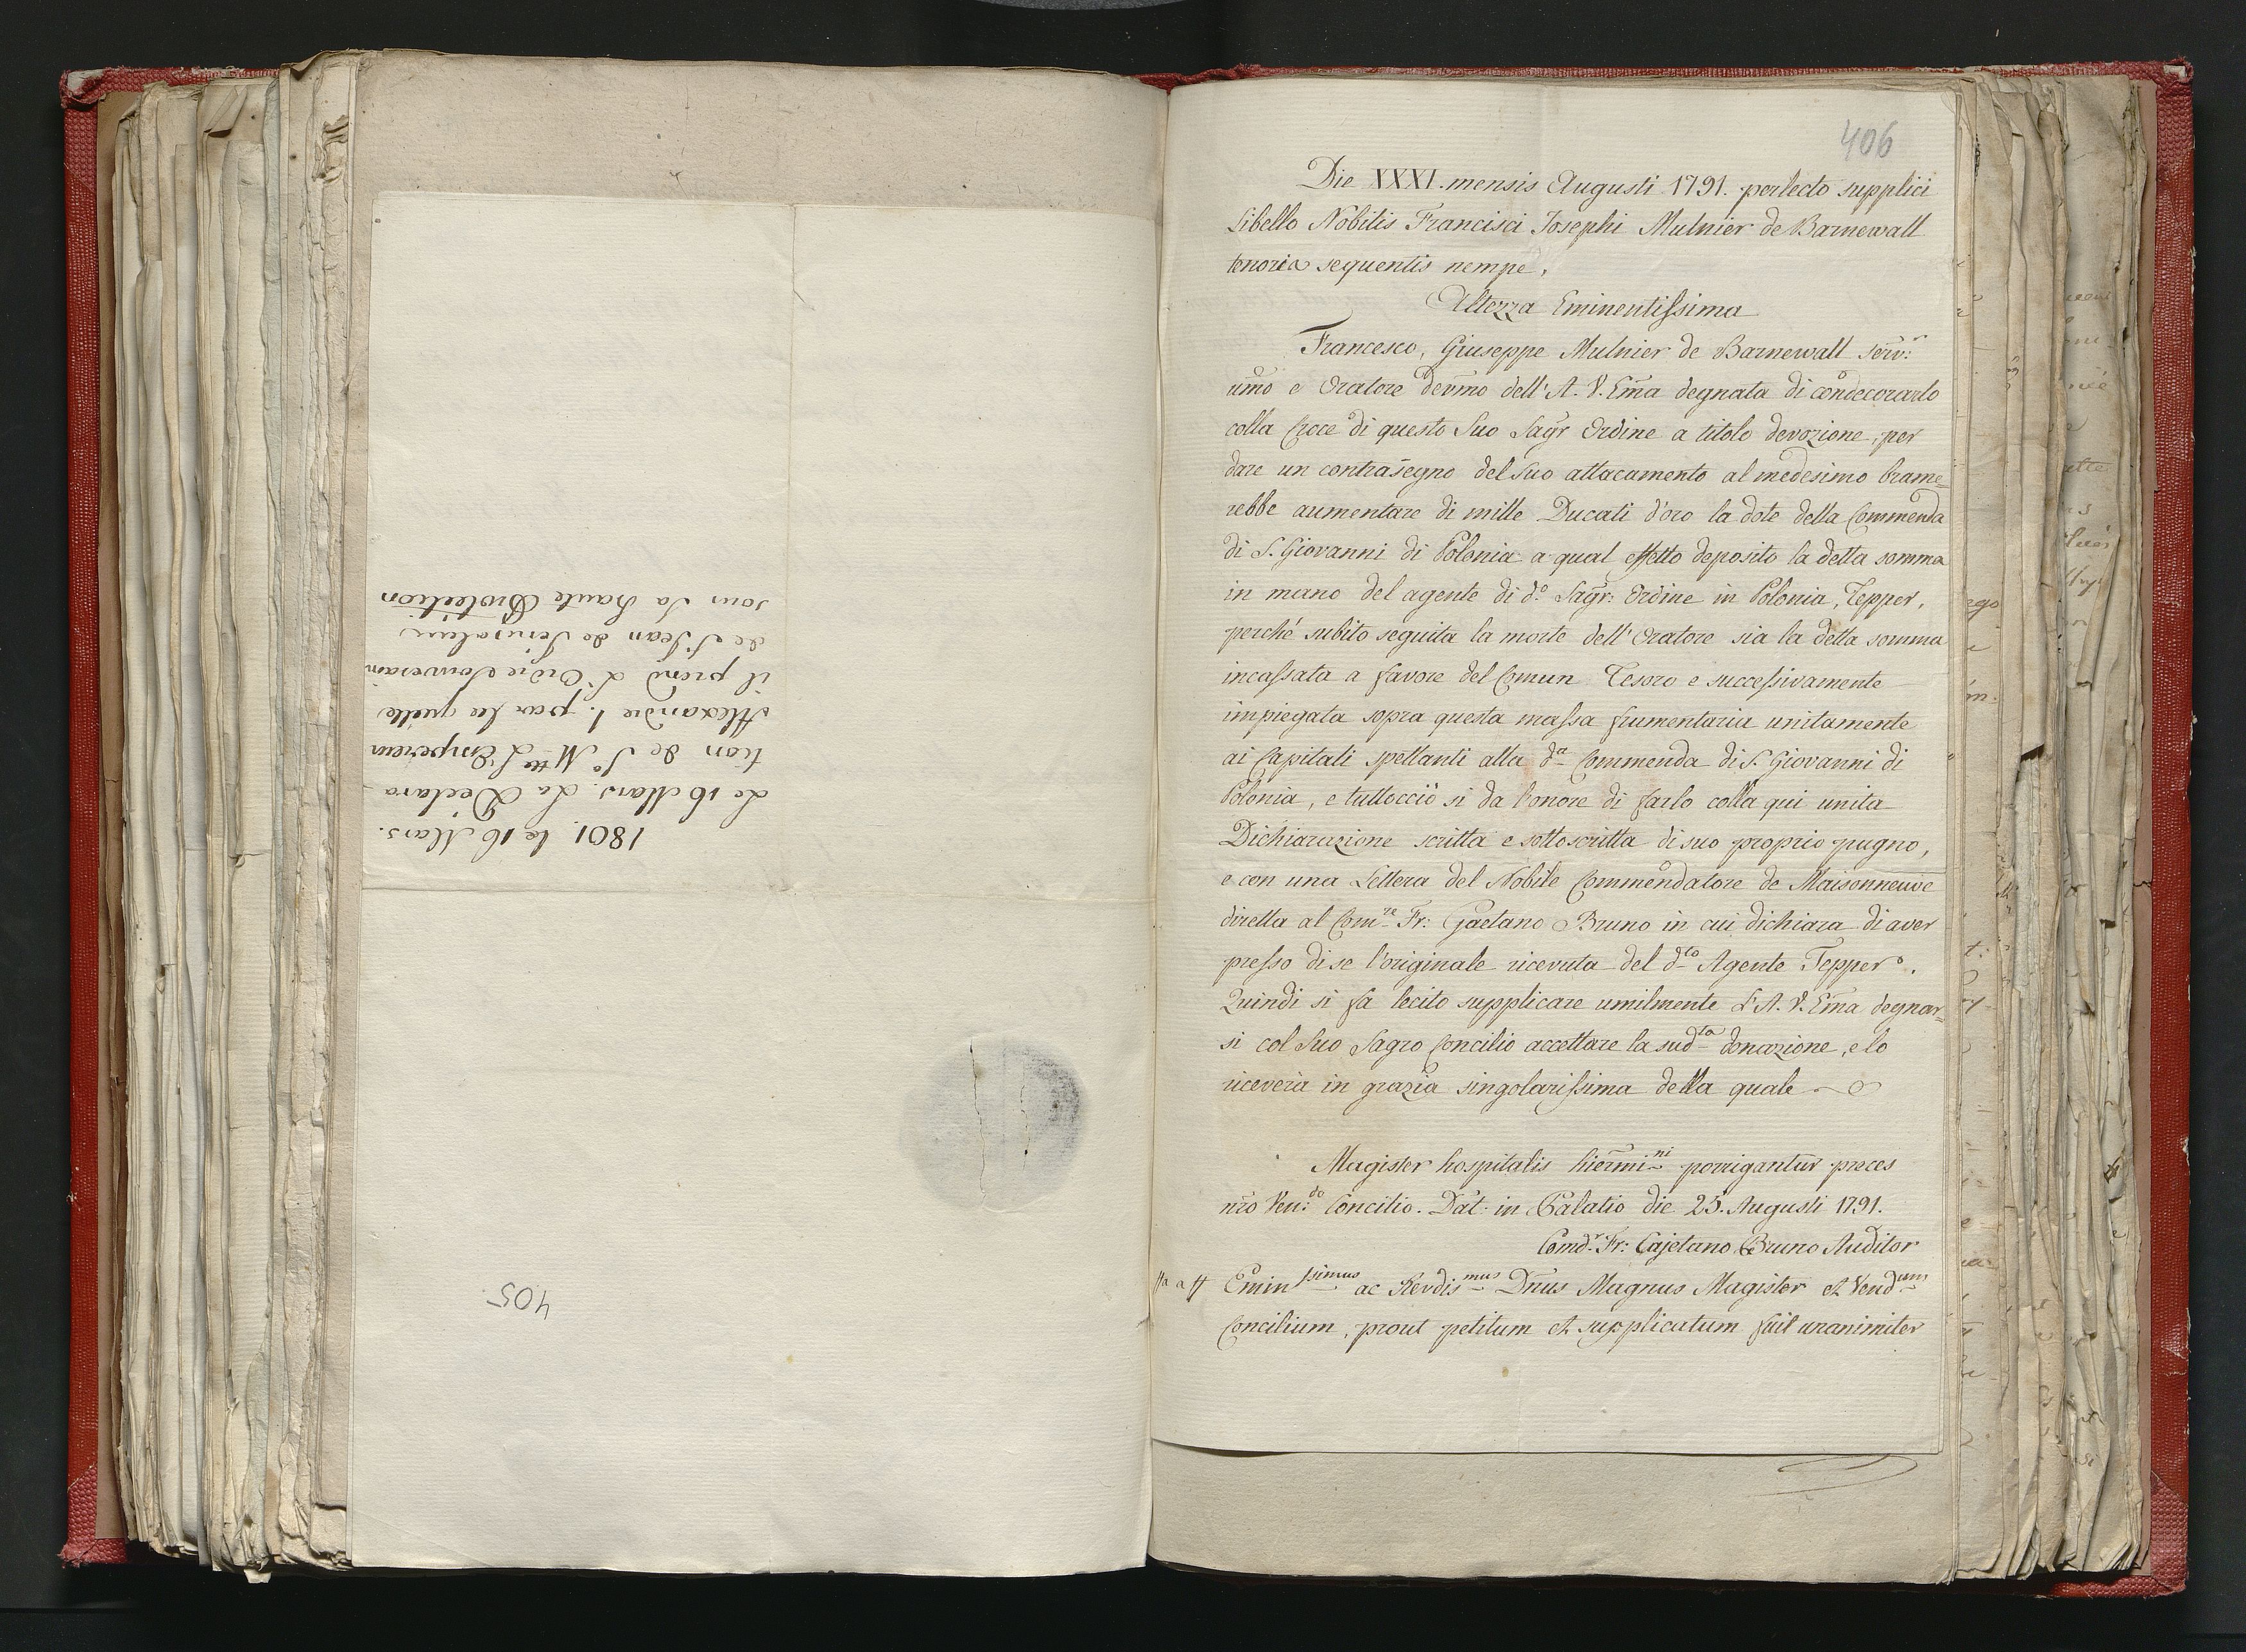 1801. le 16 Mars.
Le 16 Mars. La Declara-
tion de S. M.tté L'Empereur
Alexandre 1. par la quelle
il prend L'Ordre Souverain
de S. Jean de Jerusalem
sous sa haute Protection
405
406
Die XXXI. mensis Augusti 1791. perlecto supplici
Libello Nobilis Francisci Josephi Mulnier de Barnewall
tenoris sequentis nempe,
Altezza Eminentissima
Francesco, Giuseppe Mulnier de Barnewall serv.r
umo e Oratore devmo dell' A. V. Ema degnata di condecorarlo
colla Croce di questo Suo Sagr Ordine a titolo devozione, per
dare un contrasegno del suo attacamento al medesimo brame=
rebbe aumentare di mille Ducati d'oro la dote della Commenda
di S. Giovanni di Polonia a qual effetto deposito la detta somma
in mano del agente di d.o Sagr: Ordine in Polonia, Tepper,
perché subito seguita la morte dell' Oratore sia la detta somma
incassata a favore del Comun Tesoro e successivamente
impiegata sopra questa massa frumentaria unitamente
ai Capitali spettanti alla d.a Commenda di S. Giovanni di
Polonia, e tuttocciò si da l'onore di farlo colla qui unita
Dichiarazione scritta e sottoscritta di suo proprio pugno,
e con una Lettera del Nobile Commendatore de Maisonneuve
diretta al Com.re Fr: Gaetano Bruno in cui dichiara di aver
presso di se l'originale ricevuta del d.to Agente Tepper.
Quindi si fa lecito supplicare umilmente L'A. V. Ema degnar=
si col Suo Sagro Concilio accettare la sud.ta donazione, e lo
riceverà in grazia singolarissima della quale
Magister hospitalis hiermi.ni porrigantur preces
nro Ven.do Concilio. Dat. in Palatio die 25. Augusti 1791.
Comd.r Fr: Cajetano Bruno Auditor
Emin.ssimus ac Revdis.mus Dnus Magnus Magister et Vend.um
Concilium, prout petitum et supplicatum fuit unanimiter